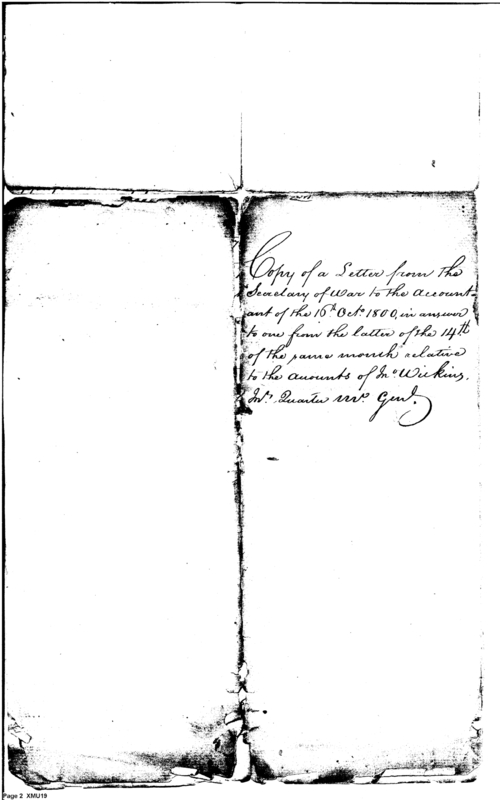 Copy of a Letter from the
Secretary of War to the Account-
ant of the 16th Octo 1800, in answer
to one from the latter of the 14th
of the same month relative
to the accounts of Jno Wilkins,
Jnr. Quarter Mr. Genl.
Page 2 XMU19